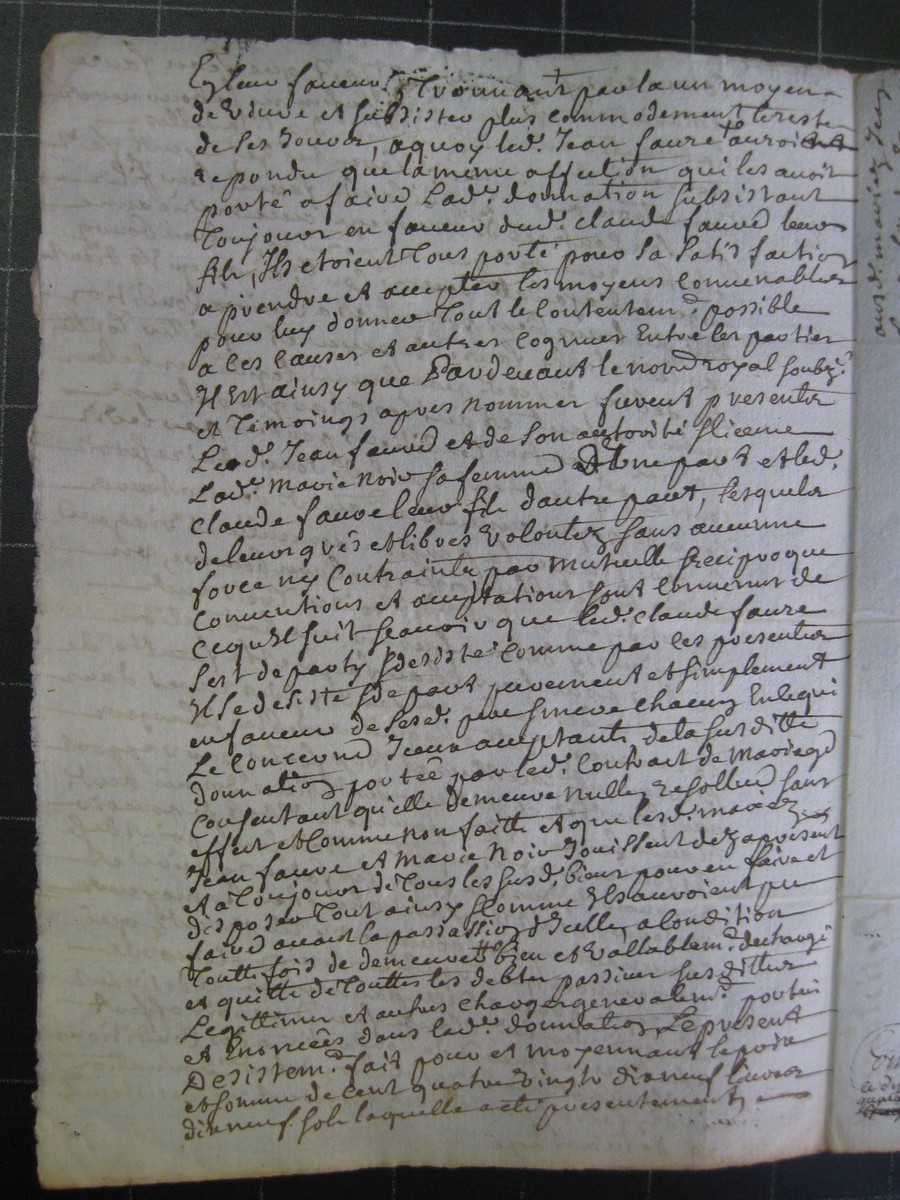 En leur faveur, trouvant par la un moyen
de vivre et subsister plus commodement le reste
de ses jours, aquoy led. Jean faure auroit
repondu que la meme affection qui les avoit
porté a faire lad. donnation subsistant
toujours en faveur dud. claude faure leur
fils, Ils etoient tous porté pour sa satisfaction
a prendre et accepter les moyens convenables
pour luy donner tout le contentem.t possible
a ces causes et autres Entre les parties
Il Est ainsy que Pardevant le no.re royal soubz.é
et temoings apres nommer furent presentes
Led. Jean faure et de son authorité
Lad. marie noir sa femme d'une part et led.
claude faure leur fils d'autre part, lesquels
de leurs grés et libres volontez sans aucunne
force ny contrainte par mutuelle reciproque
conventions et acceptations sont convenus de
ce qu'Il suit scavoir que led. claude faure
s'est departy desisté comme par ces presentes
Il se desiste depart purement et simplement
en faveur de sesd. pere mere chacun En ce qui
Le concerne Iceux acceptants de la susditte
donnation portée par led. contract de mariage
consentant qu'elle demeure nulle resollue sans
effect et comme non faitte et que lesd. mariez
Jean faure et marie noir jouissent dez apresent
et a toujours de tous les susd. biens pour en faire et
disposer tout ainsy comme Ils auroient pu
faire avant la passation d'Icelle, a condition
touttefois de demeurer bien et vallablem.t dechargé
et quitte de touttes les debtes passives susdittes
Legitimes et autres charges generalem.t portées
et Enoncées dans lad. donnation, Le present
Desistem.t fait pour et moyennant le prix
et somme de cent quatre vingts dix neuf livres
dix neuf sols laquelle a eté presentement